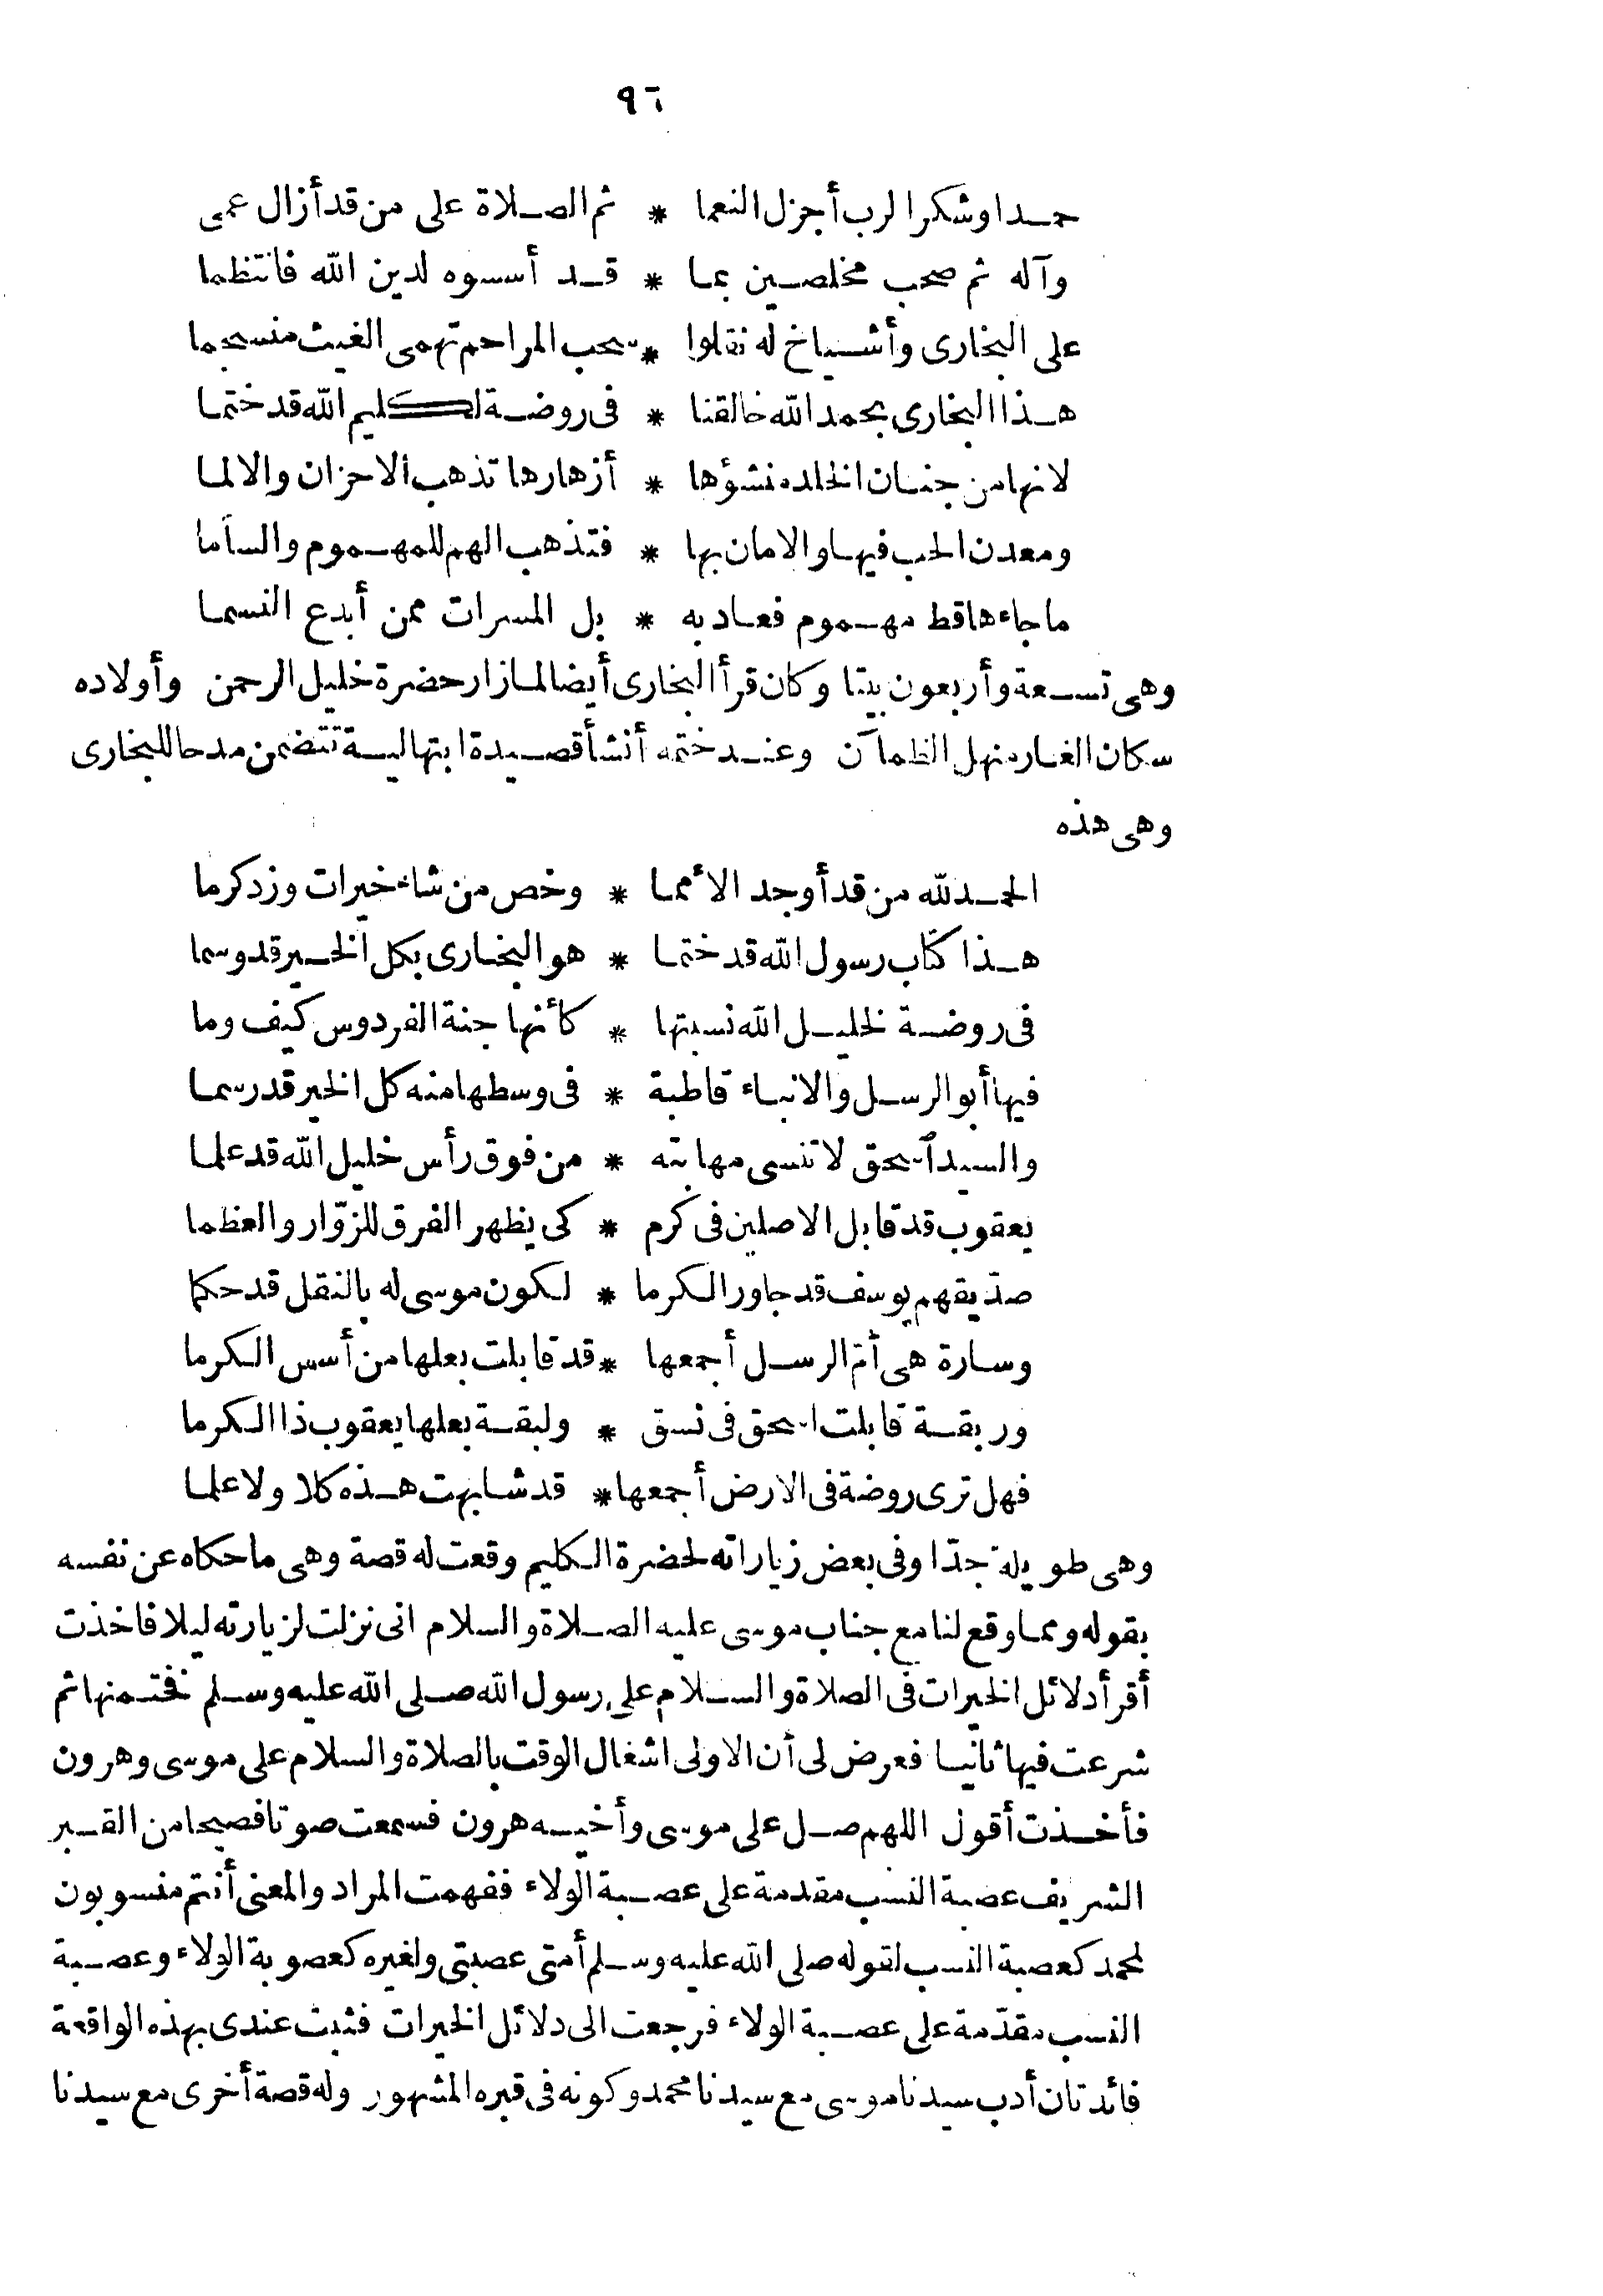 ٩٦
حمدا وشكرا لرب أجزل النعما * ثم الصلاة على من قد أزال عمى
وآله ثم صحب مخلصين بما * قد أسسوه لدين الله فانتظما
على البخارى وأشياخ له نقلوا * سحب المراحم تهمى الغيث منسجما
هذا البخارى بحمد الله خالقنا * فى روضة لكليم الله قد ختما
لانها من جنان الخلد منشؤها * أزهارها تذهب الاحزان والالما
ومعدن الحب فيها والامان بها * فتذهب الهم للمهموم والسأما
ما جاءها قط مهموم فعاد به * بل المسرات ممن أبدع النسما
وهى تسعة وأربعون بيتا وكان قرأ البخارى أيضا لما زار حضرة خليل الرحمن وأولاده
سكان الغار منهل الظمآن وعند ختمه أنشأ قصيدة ابتهالية تتضمن مدحا للبخارى
وهى هذه
الحمد لله من قد أوجد الأمما * وخص من شاء خيرات وزد كرما
هذا كتاب رسول الله قد ختما * هو البخارى بكل الخير قد وسما
فى روضة لخليل الله نسبتها * كأنها جنة الفردوس كيف وما
فيها أبو الرسل والانباء قاطبة * فى وسطها منه كل الخير قد رسما
والسيد آسحق لا تنسى مهابته * من فوق رأس خليل الله قد علما
يعقوب قد قابل الاصلين فى كرم * كى يظهر الفرق للزوّار والعظما
صدّيقهم يوسف قد جاور الكرما * لكون موسى له بالنقل قد حكما
وسارة هى أمّ الرسل أجمعها * قد قابلت بعلها من أسس الكرما
وربقة قابلت اسحق فى نسق * ولبقة بعلها يعقوب ذا الكرما
فهل ترى روضة فى الارض أجمعها * قد شابهت هذه كلا ولا علما
وهى طويلة جدّا وفى بعض زياراته لحضرة الكليم وقعت له قصة وهى ما حكاه عن نفسه
بقوله ومما وقع لنا مع جناب موسى عليه الصلاة والسلام انى نزلت لزيارته ليلا فاخذت
أقرأ دلائل الخيرات فى الصلاة والسلام على رسول الله صلى الله عليه وسلم فختمنها ثم
شرعت فيها ثانيا فعرض لى أن الاولى اشغال الوقت بالصلاة والسلام على موسى وهرون
فأخذت أقول اللهم صل على موسى وأخيه هرون فسمعت صوتا فصيحا من القبر
الشريف عصبة النسب مقدمة على عصبة الولاء ففهمت المراد والمعنى أنتم منسوبون
لمحمد كعصبة النسب لقوله صلى الله عليه وسلم أمتى عصبتى ولغيره كعصوبة الولاء وعصبة
النسب مقدّمة على عصبة الولاء فرجعت الى دلائل الخيرات فثبت عندى بهذه الواقعة
فائدتان أدب سيدنا موسى مع سيدنا محمد وكونه فى قبره المشهور وله قصة أخرى مع سيدنا